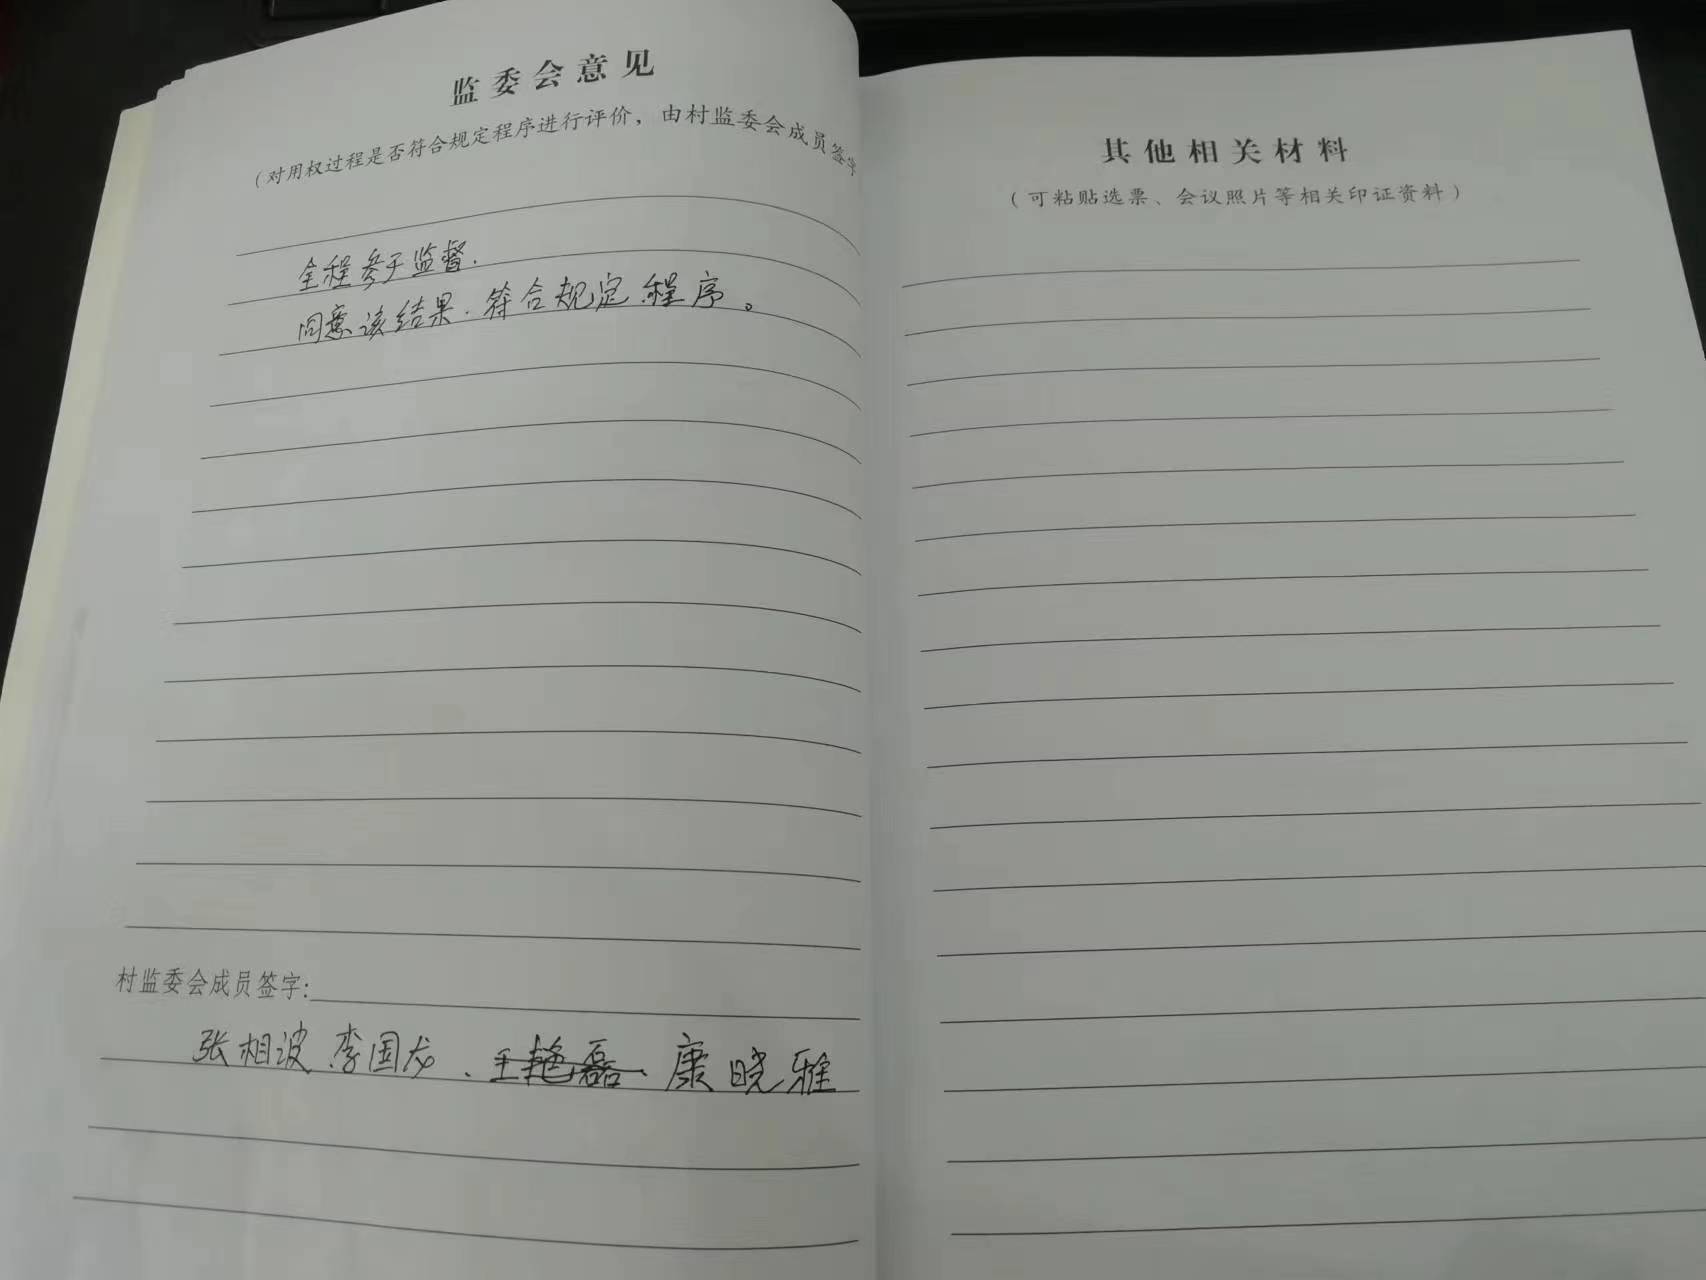 监委会意见
（对用权过程是否符合规定程序进行评价，由村监委会成员签字
全程参于监督.
同意该结果.符合规定程序。
村监委会成员签字:
张相波.李国龙、王艳磊.康晓雅
其他相关材料
（可粘贴选票、会议照片等相关印证资料）